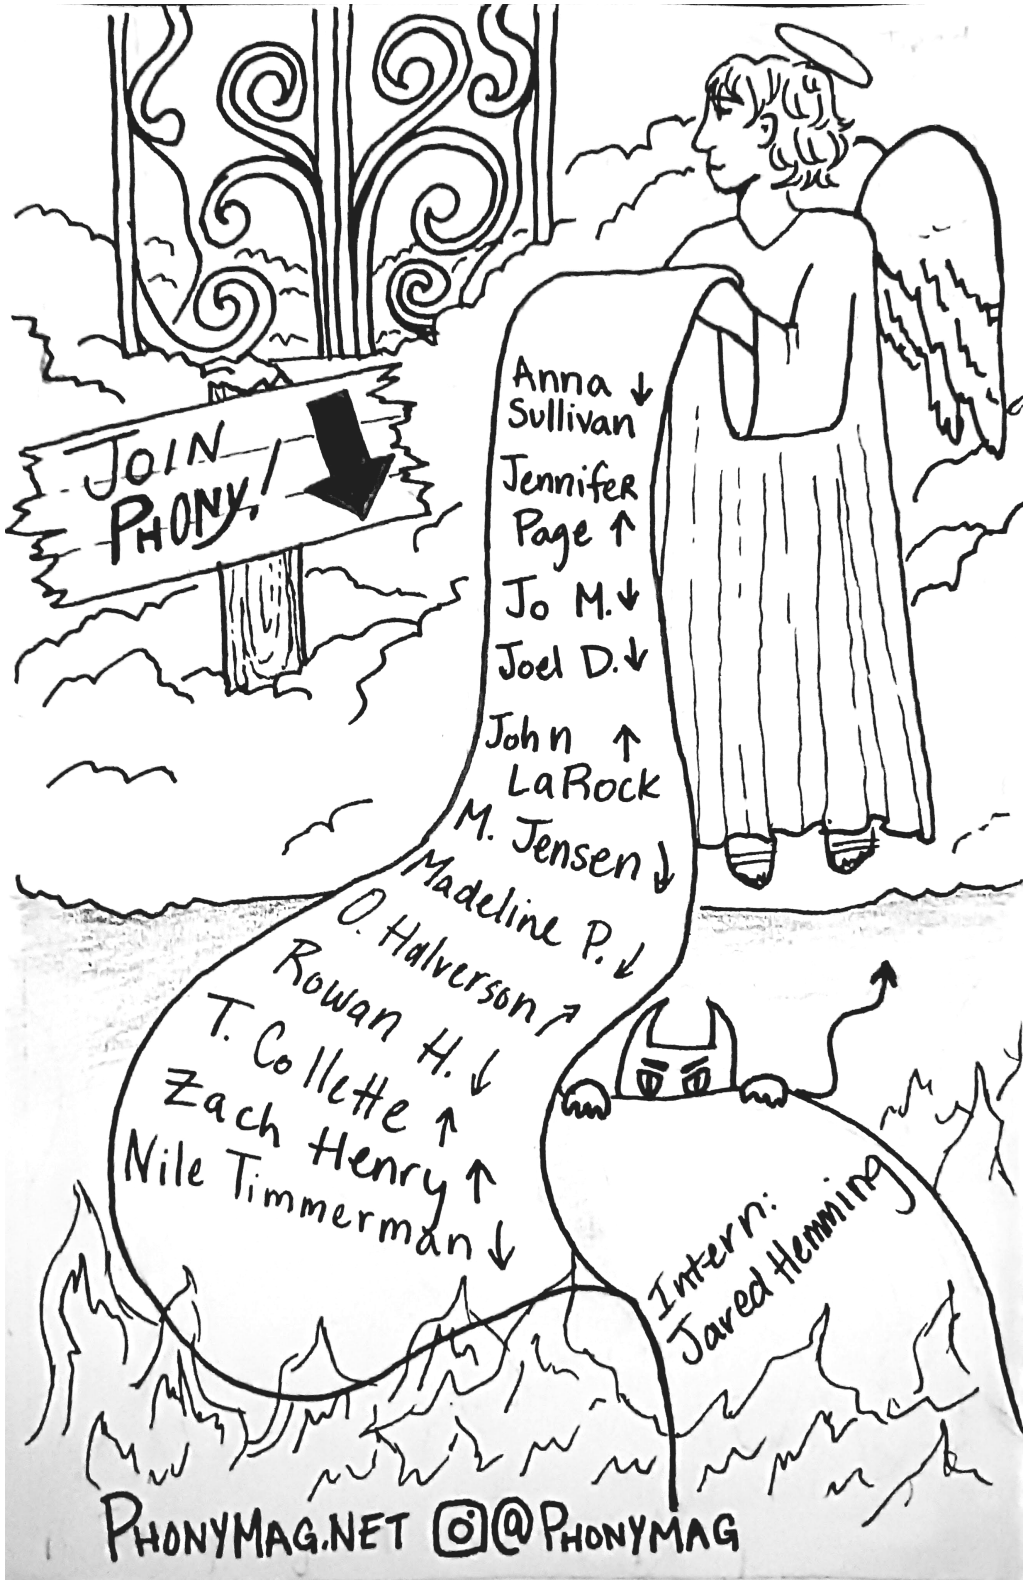 JOIN
PHONY!
Anna ↓
Sullivan
Jennifer
Page ↑
Jo M. ↓
Joel D. ↓
John ↑
LaRock
M. Jensen ↓
Madeline P. ↓
O. Halverson ↗
Rowan H. ↓
T. Collette ↑
Zach Henry ↑
Nile Timmerman ↓
Intern:
Jared Hemming
PHONYMAG.NET @PHONYMAG